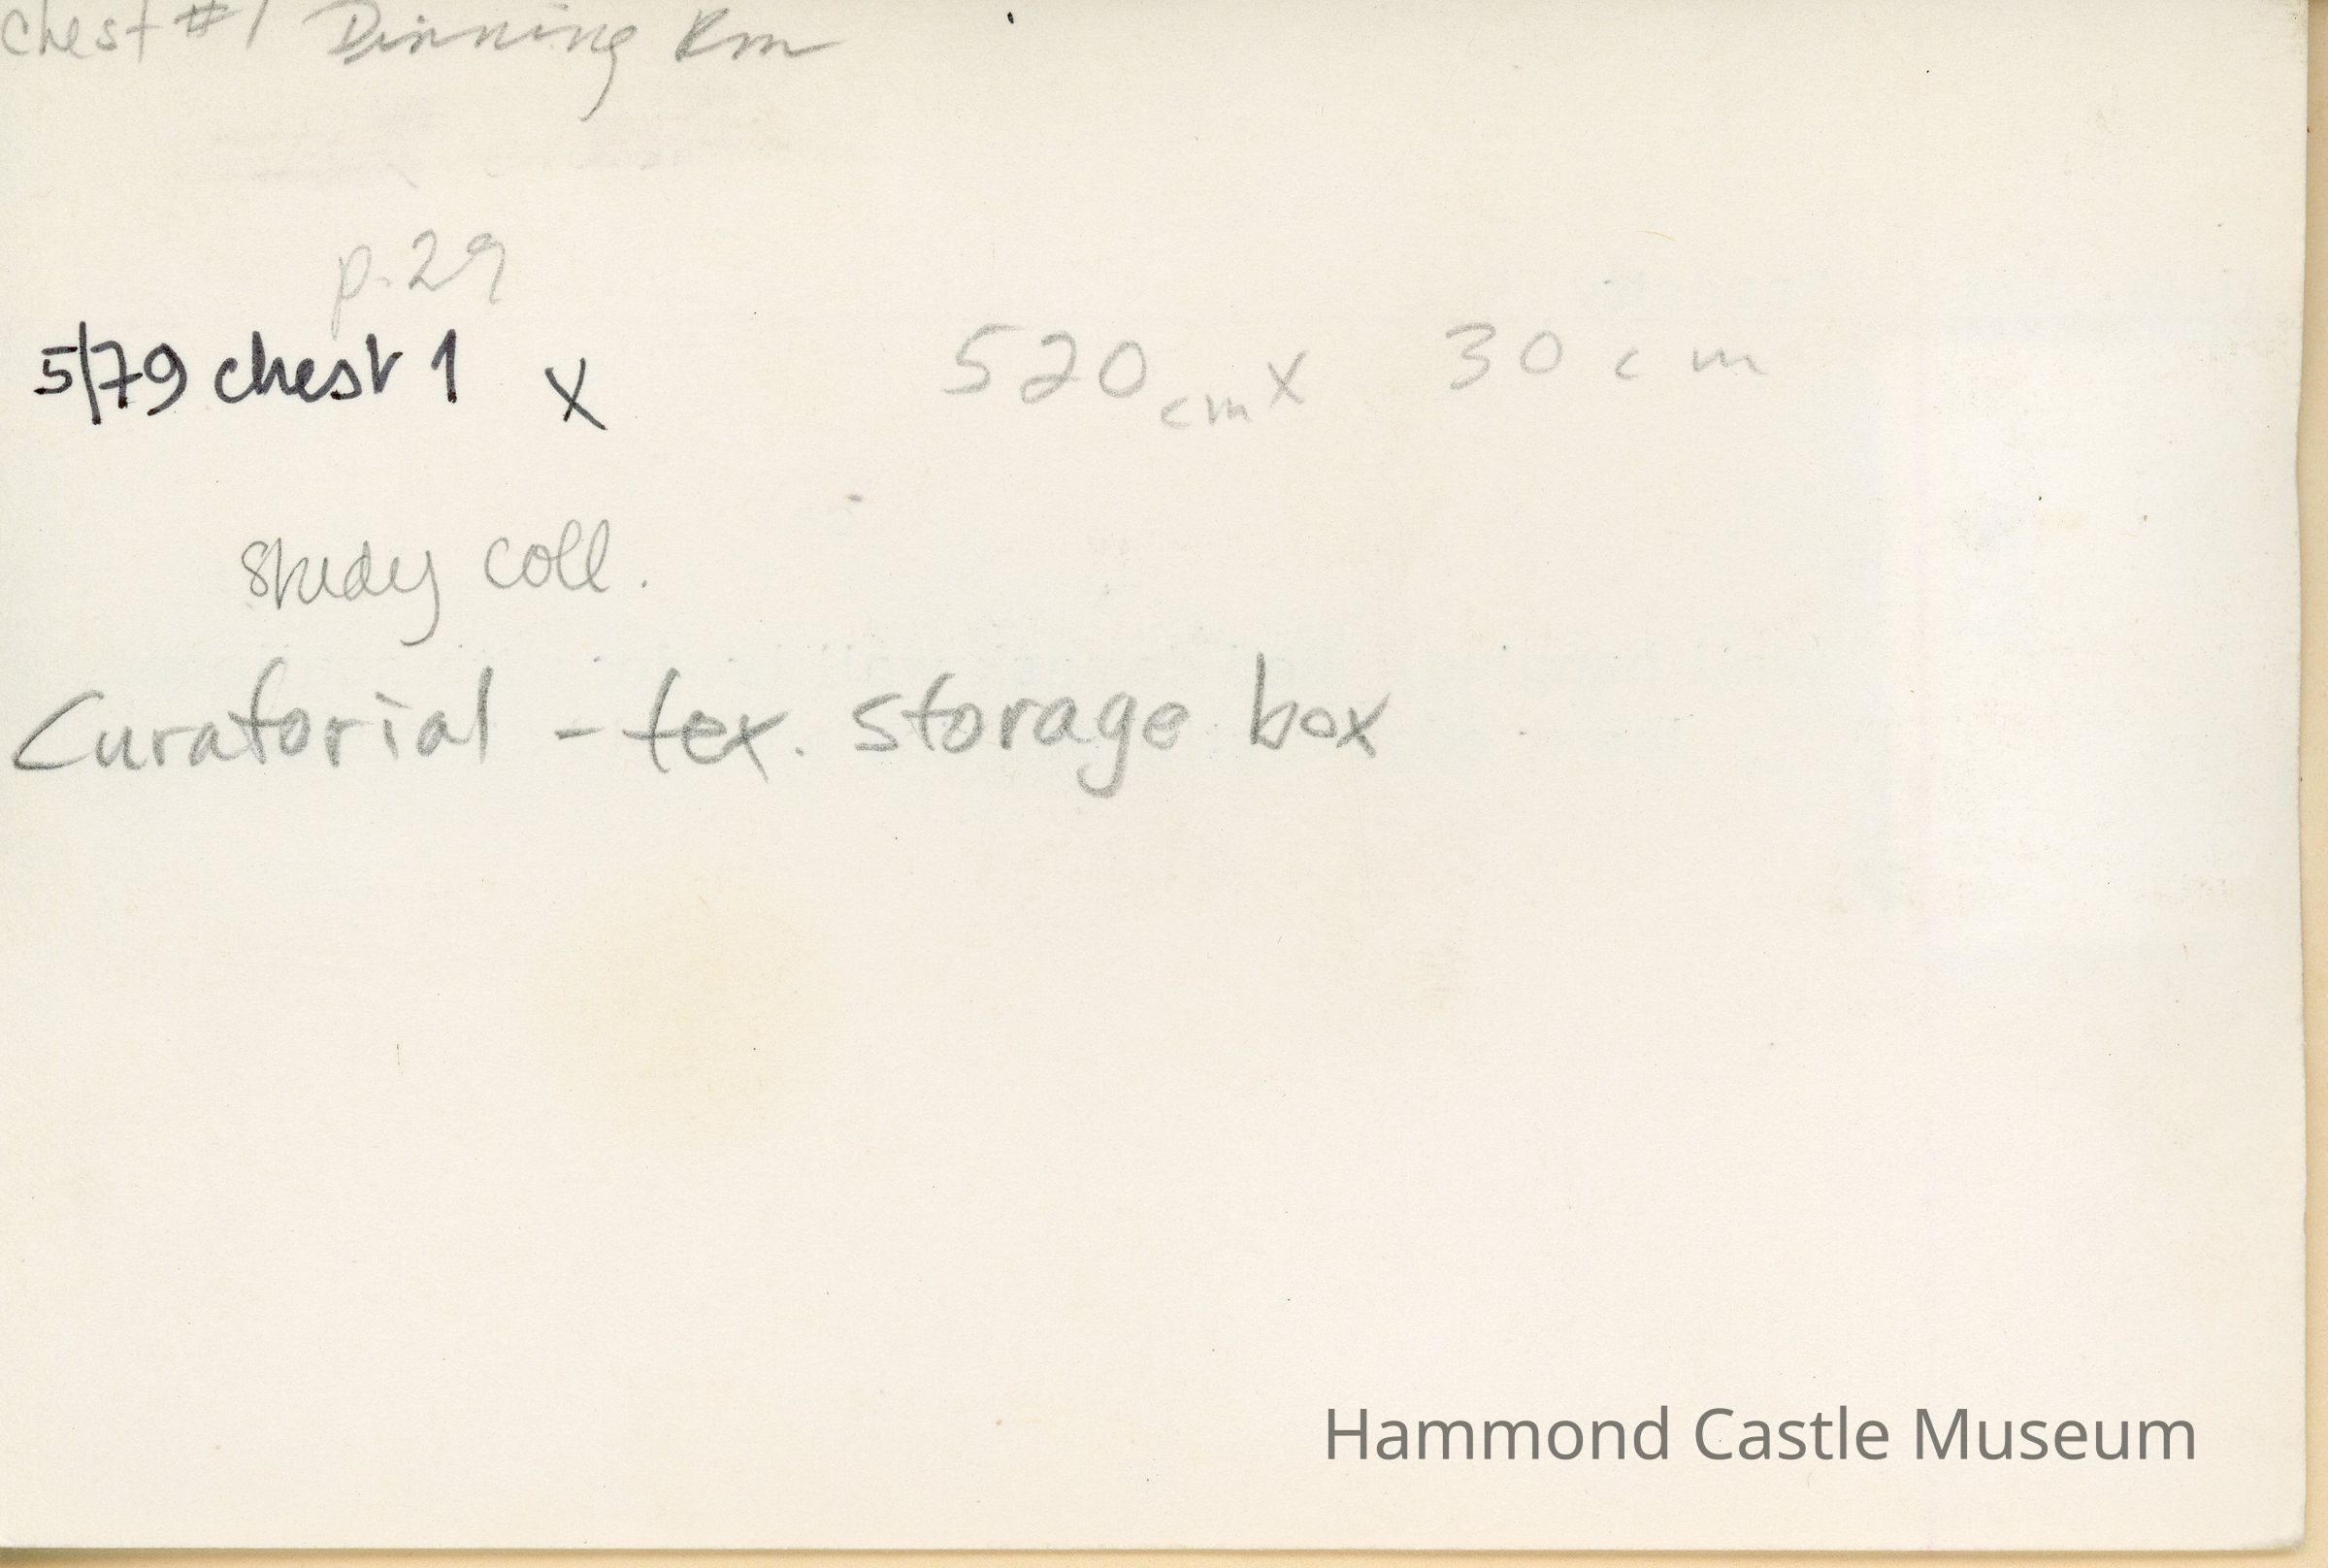 chest #1 Dinning Rm
p. 29
5/79 chest 1 x 520 cm x 30 cm
study coll.
Curatorial - tex. storage box
Hammond Castle Museum